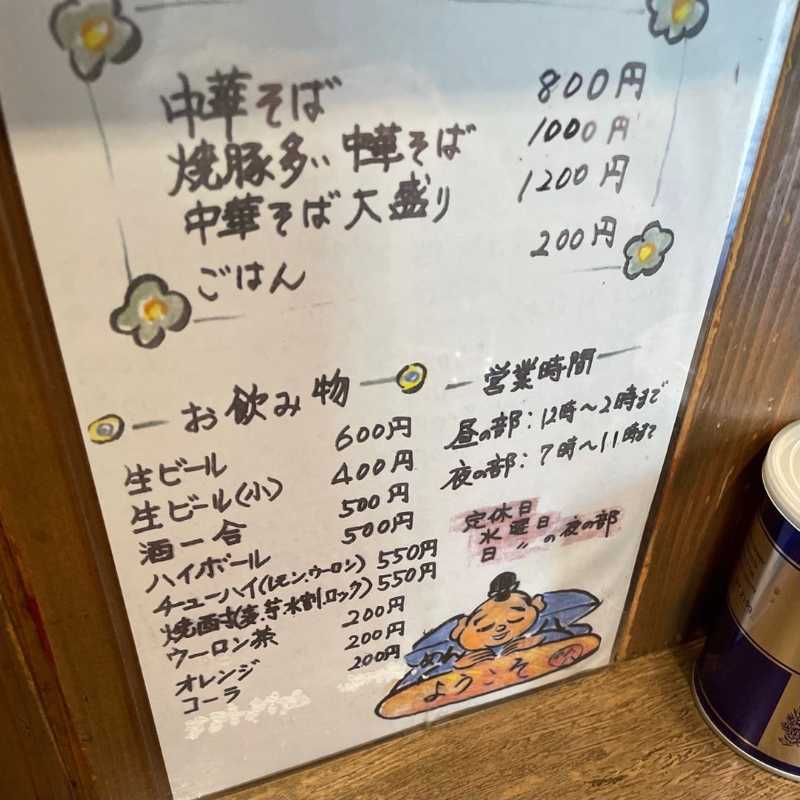 中華そば 800円
焼豚多い中華そば 1000円
中華そば大盛り 1200円
ごはん 200円
お飲み物
生ビール 600円
生ビール(小) 400円
酒一合 500円
ハイボール 500円
チューハイ(レモン.ウーロン) 550円
焼酎(麦.芋.水割.ロック) 550円
ウーロン茶 200円
オレンジ 200円
コーラ 200円
営業時間
昼の部:12時〜2時まで
夜の部:7時〜11時まで
定休日
水曜日
日〃の夜の部
ようこそ